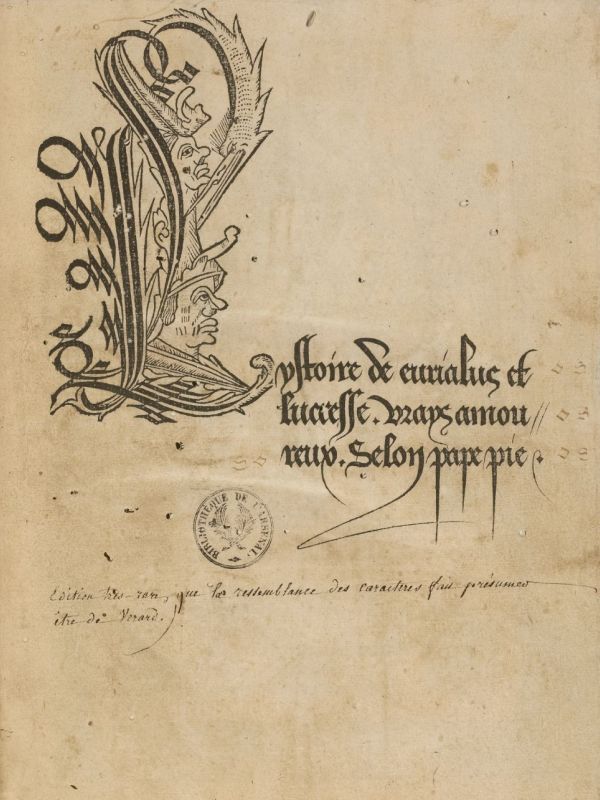 Lystoire de eurialus et
lucresse. vrays amou//
reux. Selon pape pie.
BIBLIOTHÈQUE DE L'ARSENAL
Edition très-rare, que la ressemblance des caractères fait présumer
être de Verard.